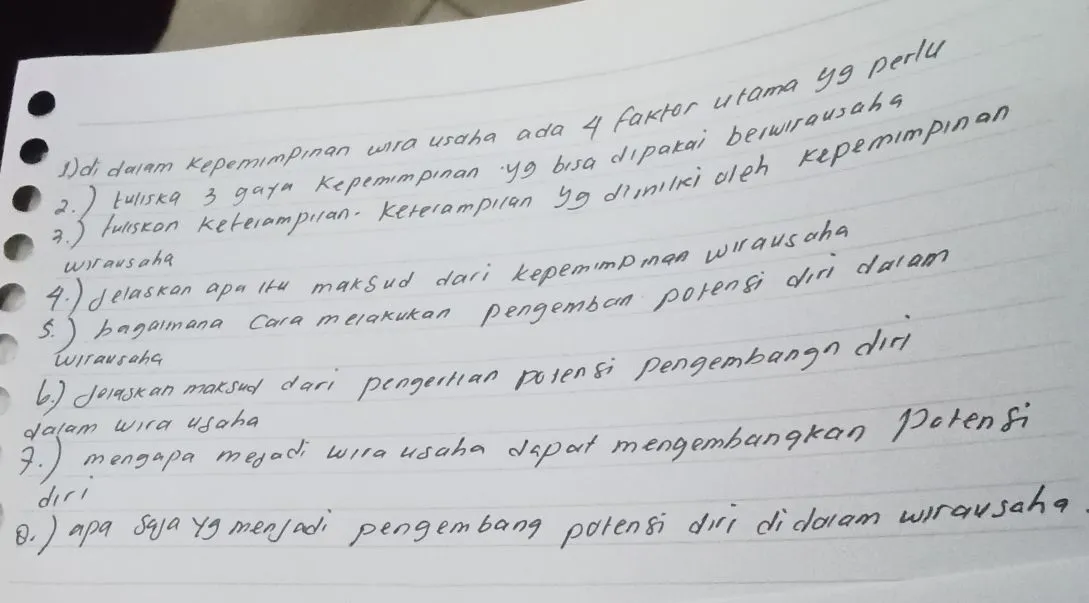 1) di dalam kepemimpinan wira usaha ada 4 faktor utama yg perlu
2.) tuliska 3 gaya kepemimpinan yg bisa dipakai berwirausaha
3.) tuliskan keterampilan-keterampilan yg dimilki oleh kepemimpinan
wirausaha
4.) Jelaskan apa itu maksud dari kepemimpinan wirausaha
5.) bagaimana cara melakukan pengemban potensi diri dalam
wirausaha
6.) Jelaskan maksud dari pengertian potensi pengembangn diri
dalam wira usaha
7.) mengapa mejadi wira usaha dapat mengembangkan Potensi
diri
8.) apa saja yg menjadi pengembang potensi diri di dalam wirausaha.